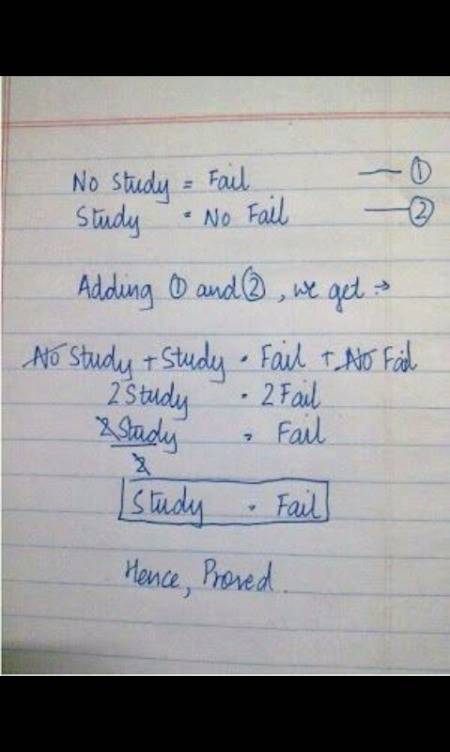 No Study = Fail — ①
Study = No Fail — ②
Adding ① and ②, we get →
No Study + Study = Fail + No Fail
2 Study = 2 Fail
2 Study = Fail
2
Study = Fail
Hence, Proved.